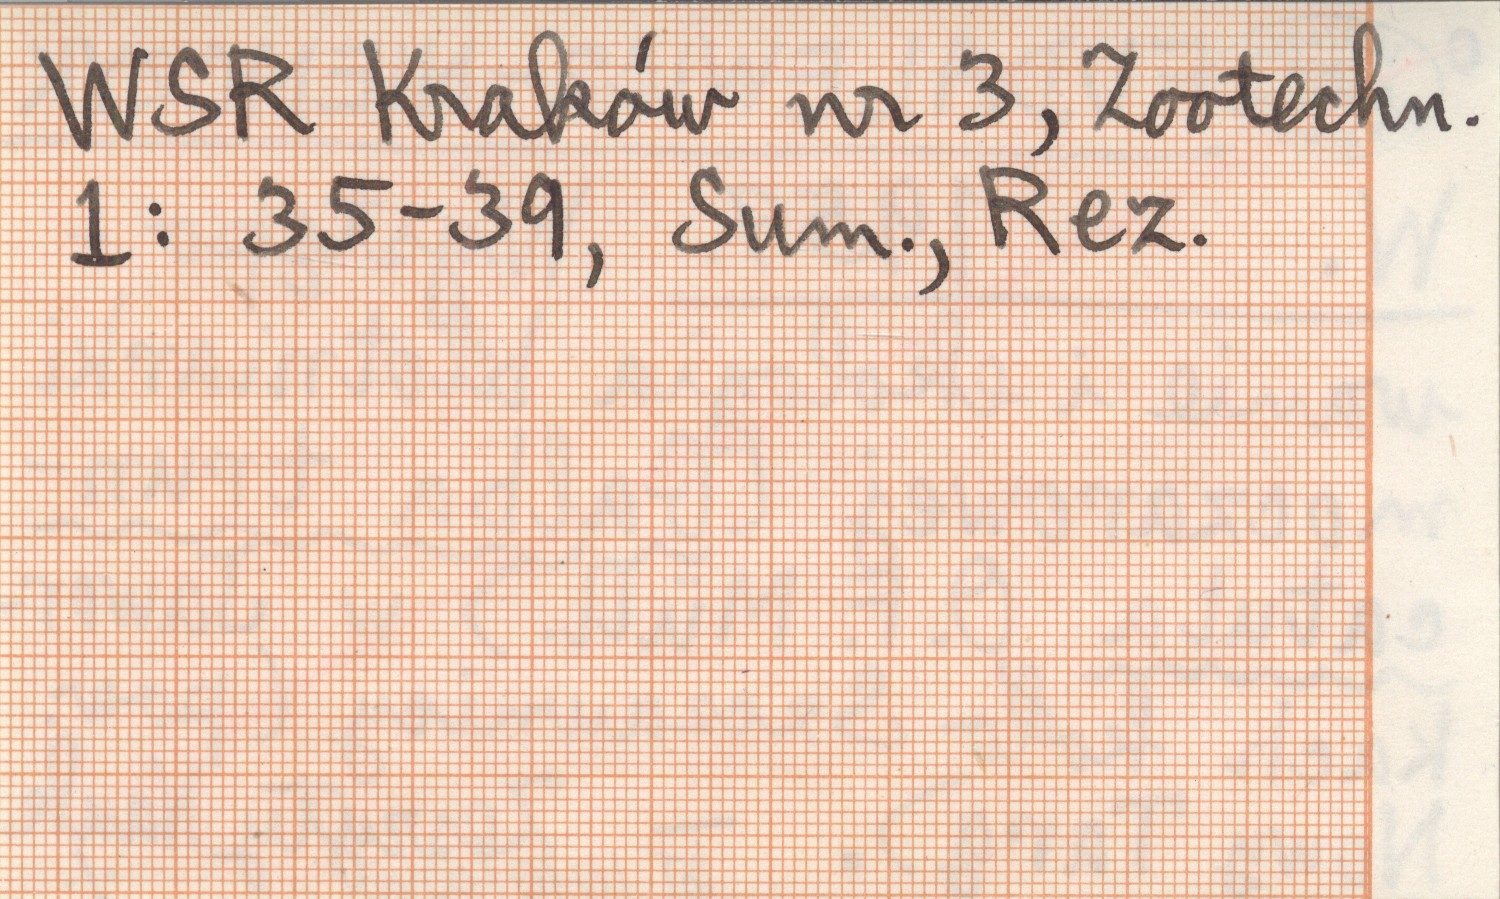 WSR Kraków nr 3, Zootechn.
1: 35-39, Sum., Rez.